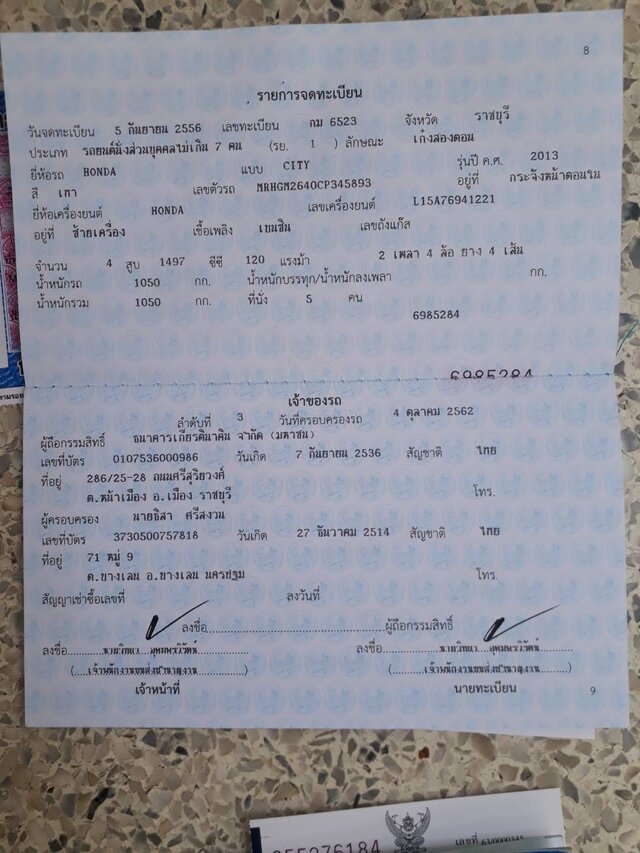 8
รายการจดทะเบียน
วันจดทะเบียน 5 กันยายน 2556 เลขทะเบียน กม 6523 จังหวัด ราชบุรี
ประเภท รถยนต์นั่งส่วนบุคคลไม่เกิน 7 คน (รย. 1 ) ลักษณะ เก๋งสองตอน
ยี่ห้อรถ HONDA แบบ CITY รุ่นปี ค.ศ. 2013
สี เทา เลขตัวรถ MRHGM2640CP345893 อยู่ที่ กระจังหน้าตอนใน
ยี่ห้อเครื่องยนต์ HONDA เลขเครื่องยนต์ L15A76941221
อยู่ที่ ซ้ายเครื่อง เชื้อเพลิง เบนซิน เลขถังแก๊ส
จำนวน 4 สูบ 1497 ซีซี 120 แรงม้า 2 เพลา 4 ล้อ ยาง 4 เส้น
น้ำหนักรถ 1050 กก. น้ำหนักบรรทุก/น้ำหนักลงเพลา กก.
น้ำหนักรวม 1050 กก. ที่นั่ง 5 คน
6985284
6985284
เจ้าของรถ
ลำดับที่ 3 วันที่ครอบครองรถ 4 ตุลาคม 2562
ผู้ถือกรรมสิทธิ์ ธนาคารเกียรตินาคิน จำกัด (มหาชน)
เลขที่บัตร 0107536000986 วันเกิด 7 กันยายน 2536 สัญชาติ ไทย
ที่อยู่ 286/25-28 ถนนศรีสุริยวงศ์
ต.หน้าเมือง อ.เมือง ราชบุรี โทร.
ผู้ครอบครอง นายธิสา ศรีสงวน
เลขที่บัตร 3730500757818 วันเกิด 27 ธันวาคม 2514 สัญชาติ ไทย
ที่อยู่ 71 หมู่ 9
ต.บางเลน อ.บางเลน นครปฐม โทร.
สัญญาเช่าซื้อเลขที่ ลงวันที่
ลงชื่อ ผู้ถือกรรมสิทธิ์
ลงชื่อ ลงชื่อ
(เจ้าพนักงานขนส่งชำนาญงาน) (เจ้าพนักงานขนส่งชำนาญงาน)
เจ้าหน้าที่ นายทะเบียน 9
เลขที่